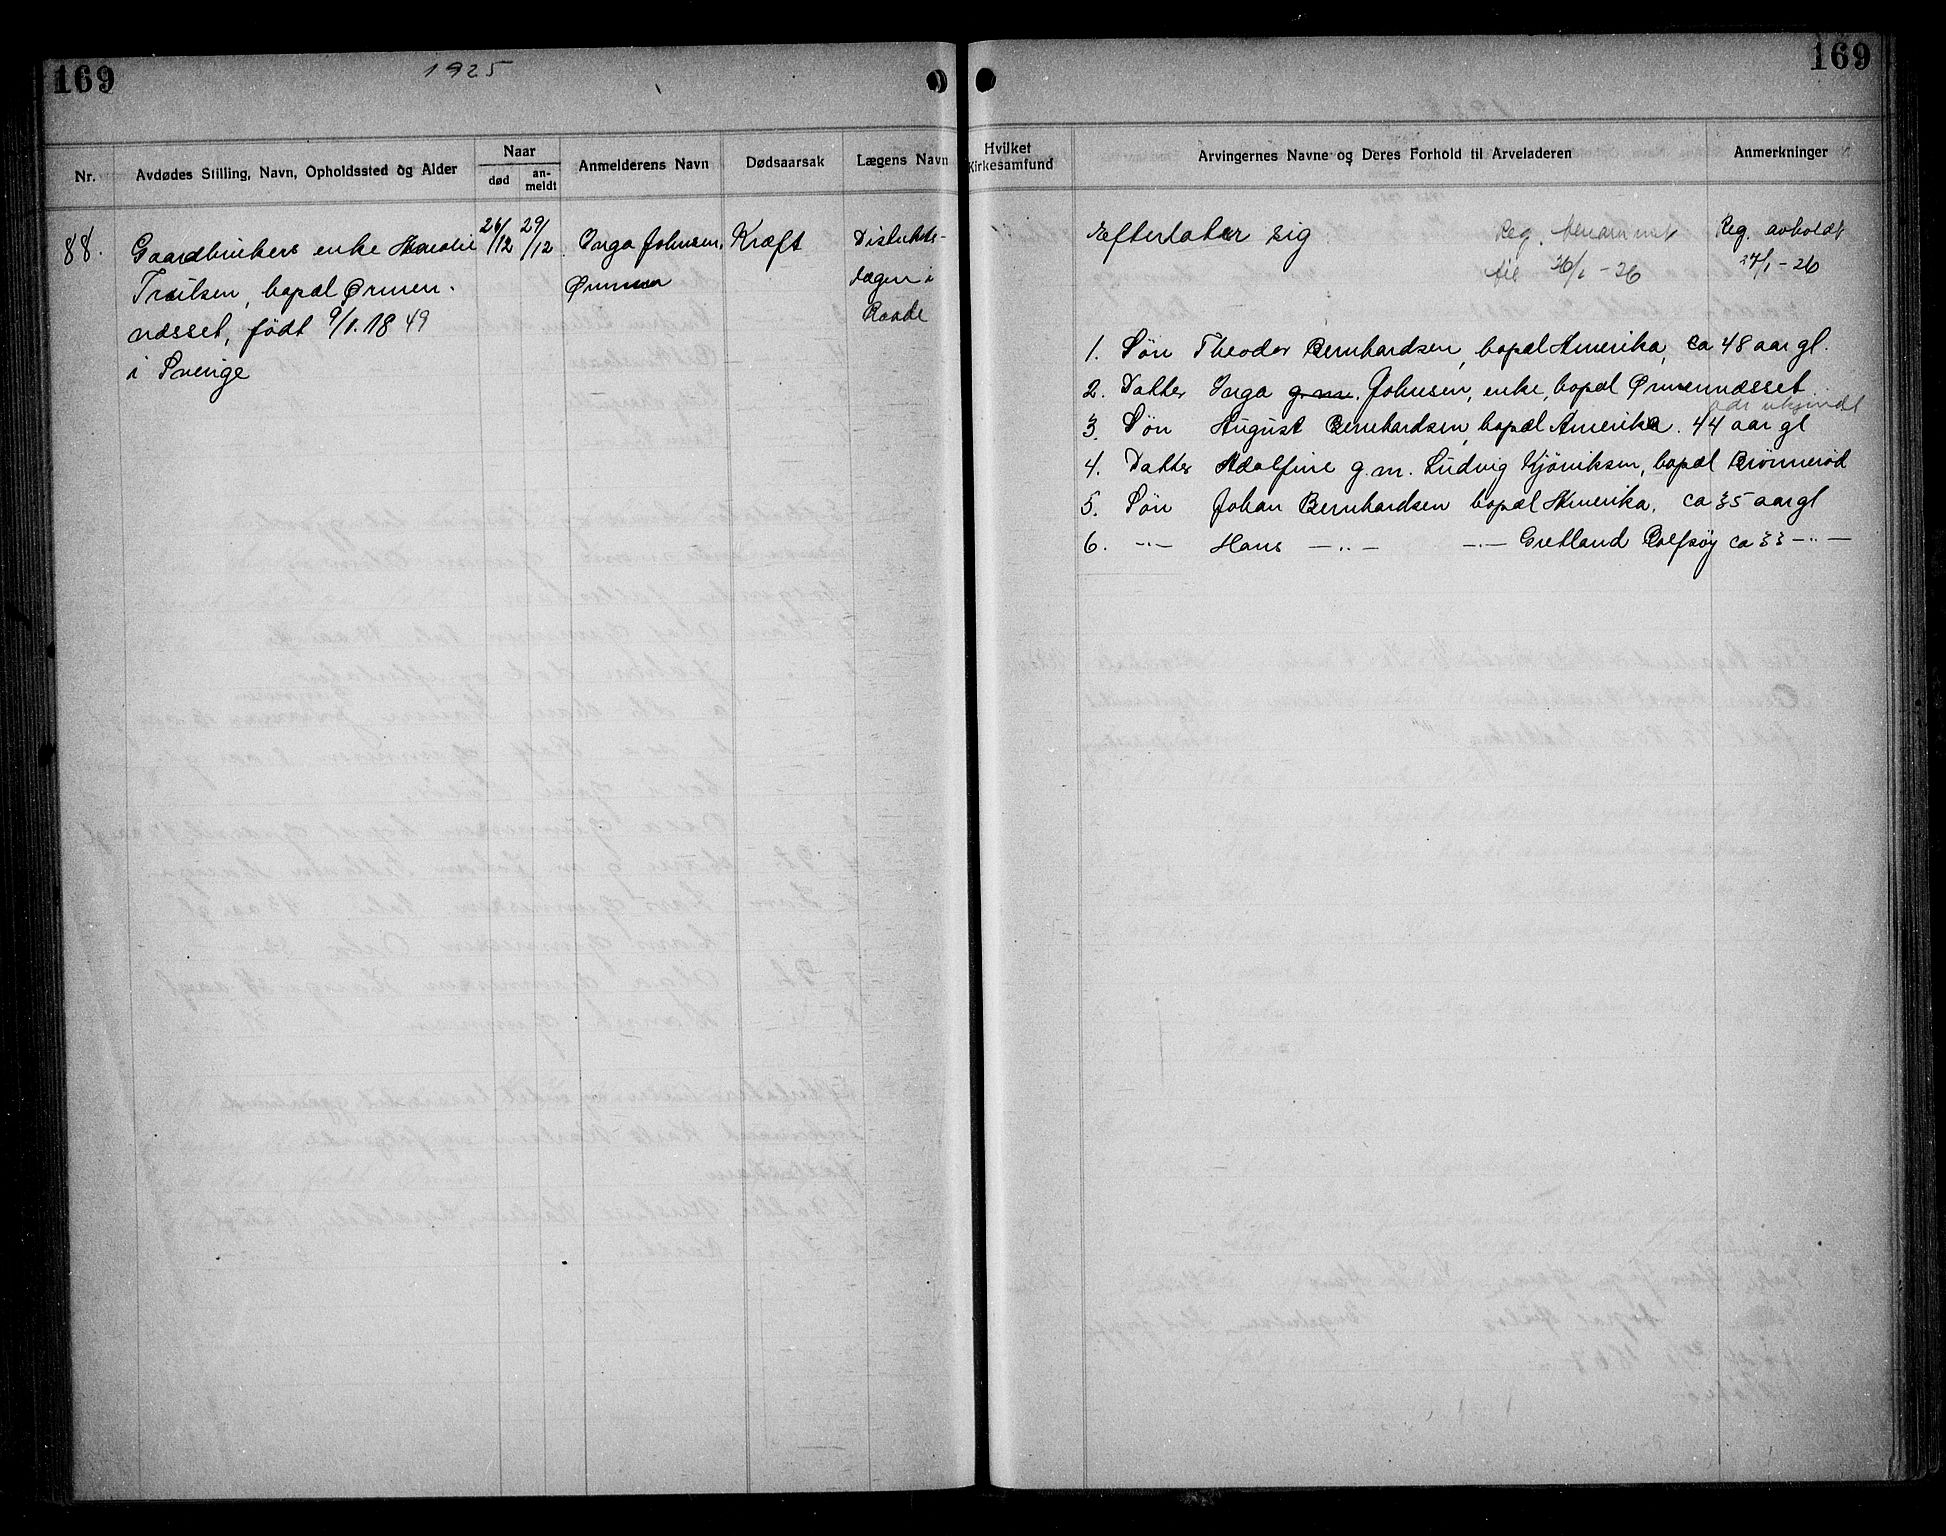 169
1925
169
Nr.
Avdødes Stilling, Navn, Opholdssted og Alder
Naar
død
an-
meldt
Anmelderens Navn
Dødsaarsak
Lægens Navn
Hvilket
Kirkesamfund
Arvingernes Navne og Deres Forhold til Arveladeren
Anmerkninger
88.
Gaardbrukers enke
Trulsen, bopæl Ørmen-
næsset, født 9/1. 1849
i Sverige
26/12
29/12
Inga Johnsen,
Kræft
Distrikts-
lægen i
Raade
Efterlater sig
Reg. berammet
til 26/1 - 26
Reg. avholdt
27/1 - 26
1. Søn Theodor Bernhardsen, bopæl Amerika, ca 48 aar gl.
2. Datter Inga g. m. Johnsen, enke, bopæl Ørmennæsset
adr ukjendt
3. Søn August Bernhardsen, bopæl Amerika. 44 aar gl
4. Datter Adolfine g. m. Ludvig Kjöniksen, bopæl Brönnerød
5. Søn Johan Bernhardsen bopæl Amerika. ca 35 aar gl
6. -"- Hans -"- -"- Gretland Rolfsøy ca 33 -"-